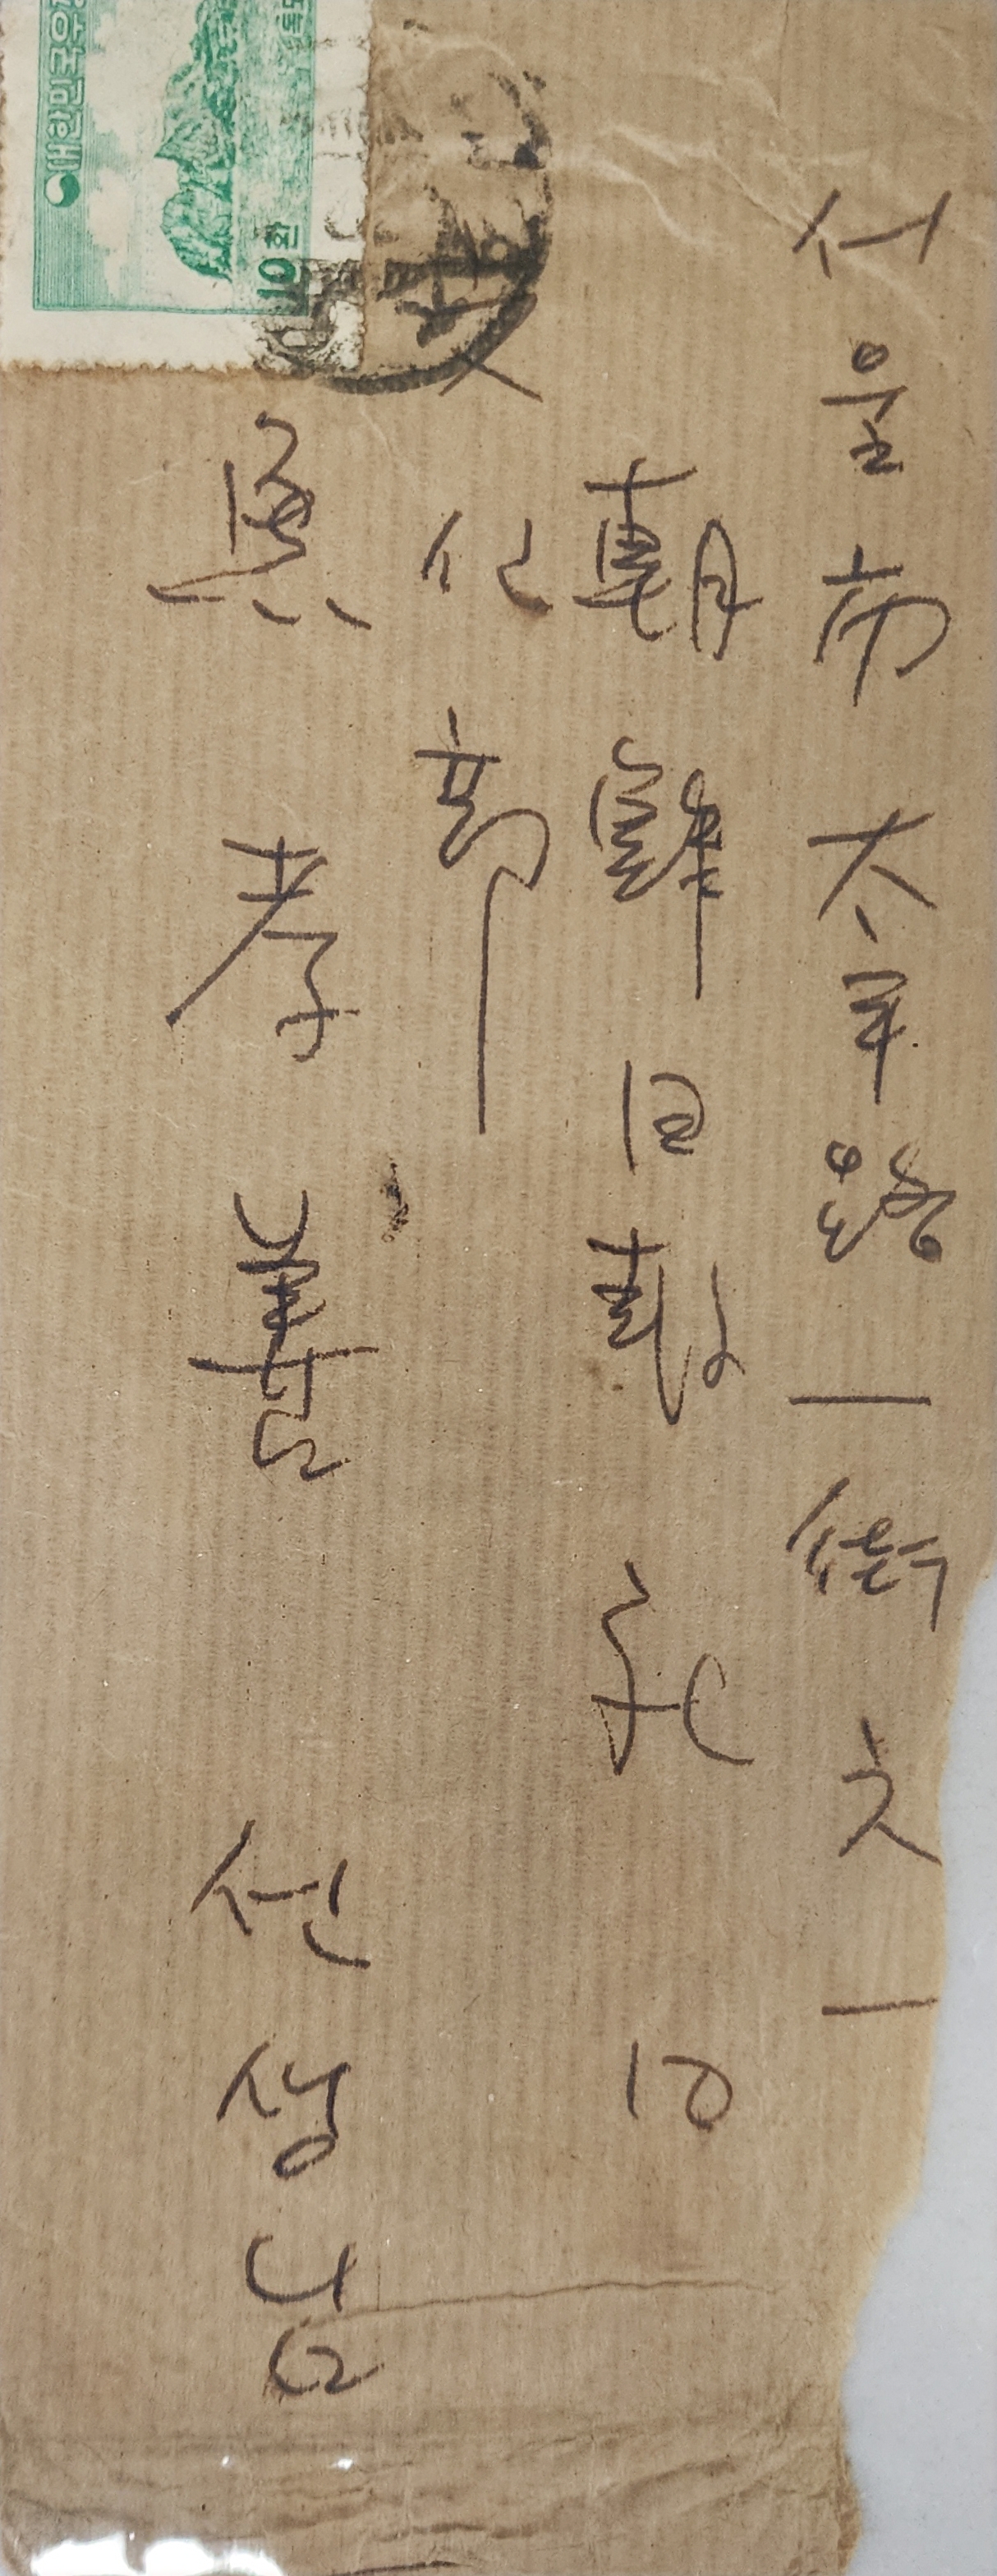 서울市太平路一街六一
朝鮮日報社
文化部
孝善 선생님
대한민국우
10환